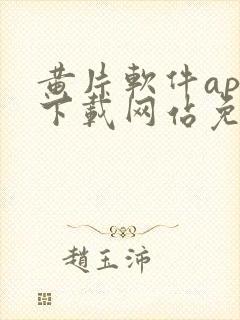 黄片軟件ap
下載网佔免
趙玉沛